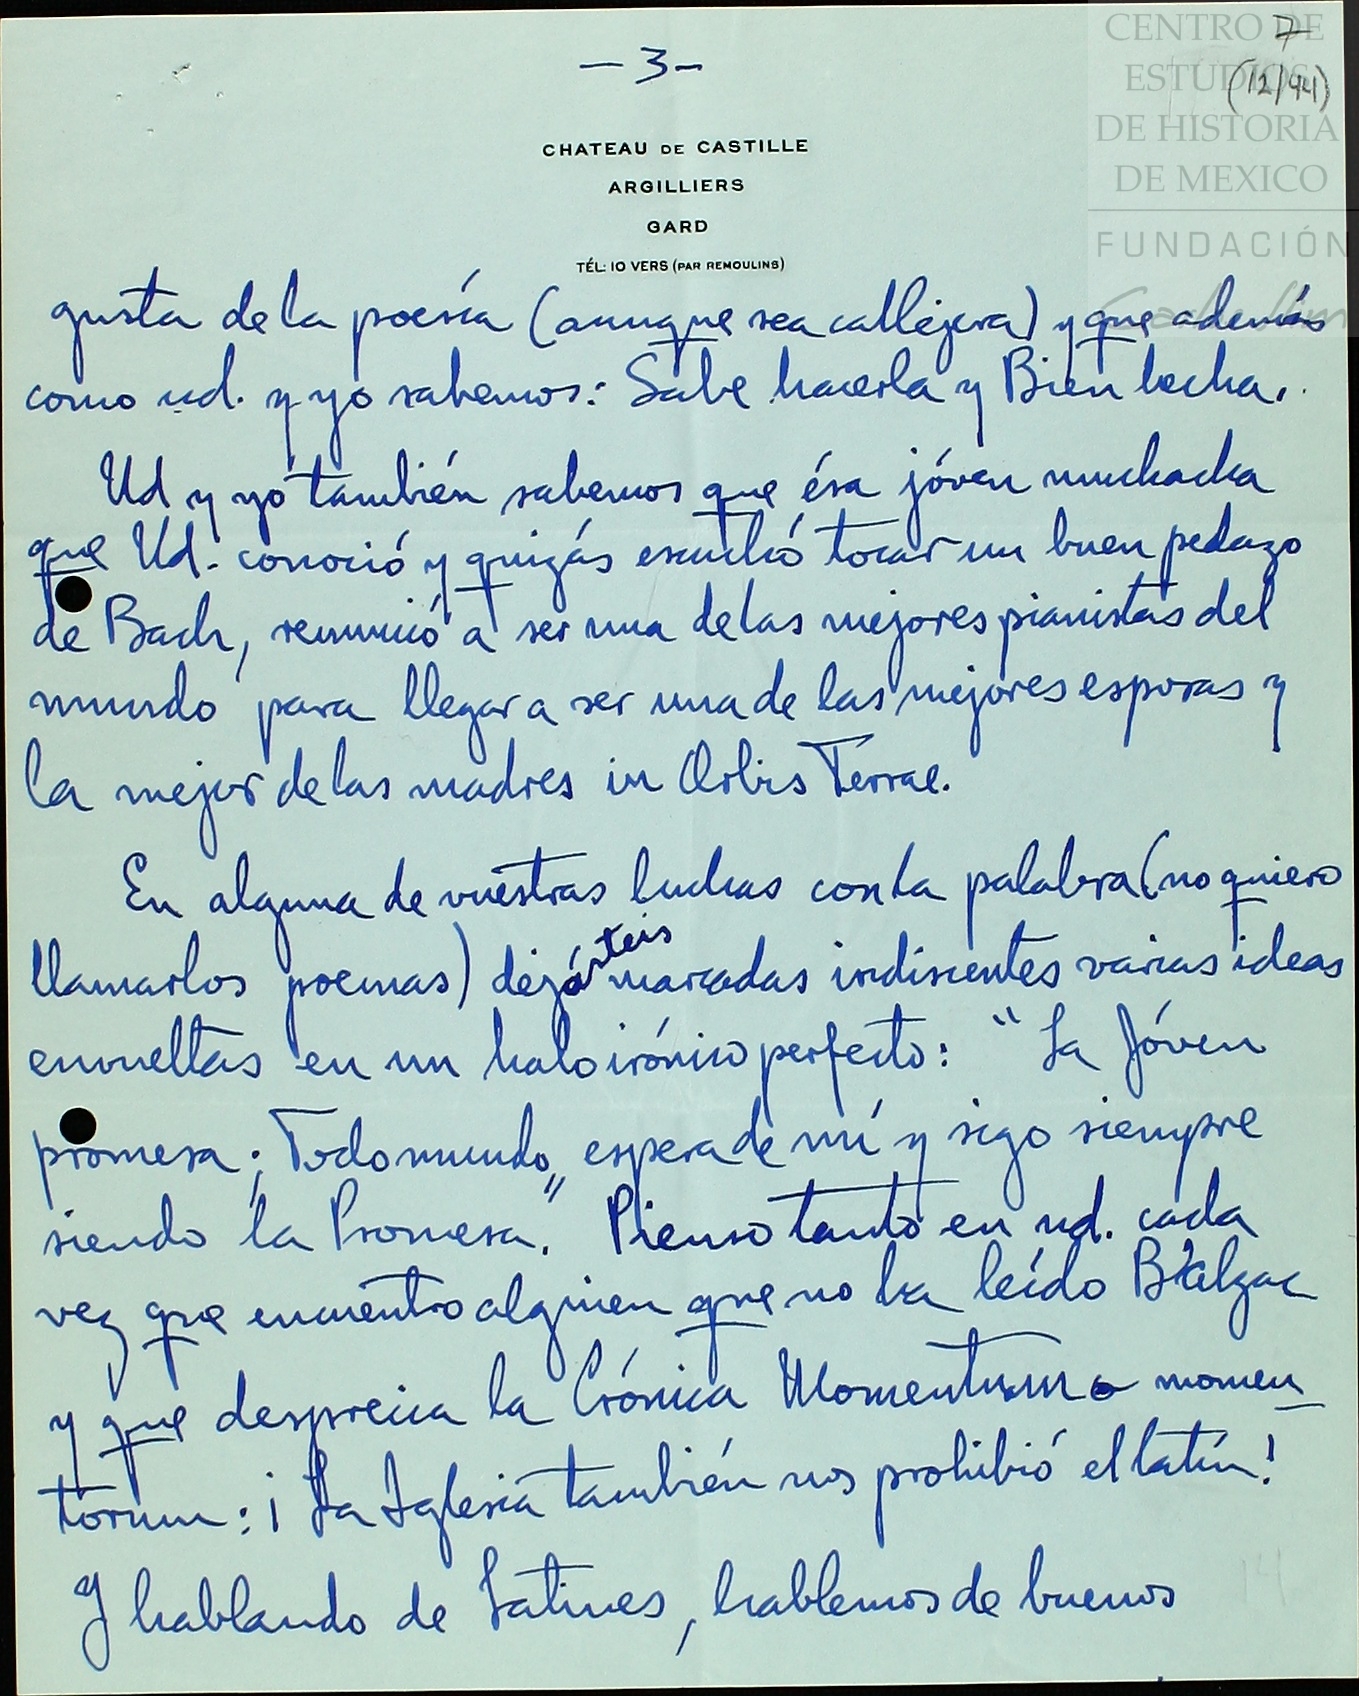 — 3 —
7
(12/44)
CENTRO DE
ESTUDIOS
DE HISTORIA
DE MEXICO
FUNDACIÓN
CHATEAU DE CASTILLE
ARGILLIERS
GARD
TÉL: 10 VERS (PAR REMOULINS)
gusta de la poesía (aunque sea calléjera) y que además
como ud. y yo sabemos: Sabe hacerla y Bien hecha.
Ud y yó también sabemos que ésa jóven muchacha
que Ud. conoció y quizás escuchó tocar un buen pedazo
de Bach, renunció a ser una de las mejores pianistas del
mundo para llegar a ser una de las mejores esposas y
la mejor de las madres in Orbis Terrae.
En alguna de vuestras luchas con la palabra (no quiero
llamarlos poemas) dejásteis marcadas indiscentes varias ideas
envueltas en un halo irónico perfecto: "La Jóven
promesa; Todo mundo espera de mí y sigo siempre
siendo la Promesa." Pienso tanto en ud. cada
vez que encuentro alguien que no ha leído Bálzac
y que desprecia la Crónica Momentum o momen
torum: ¡ La Iglesia también nos prohibió el latín!
Y hablando de Latines, hablemos de buenos